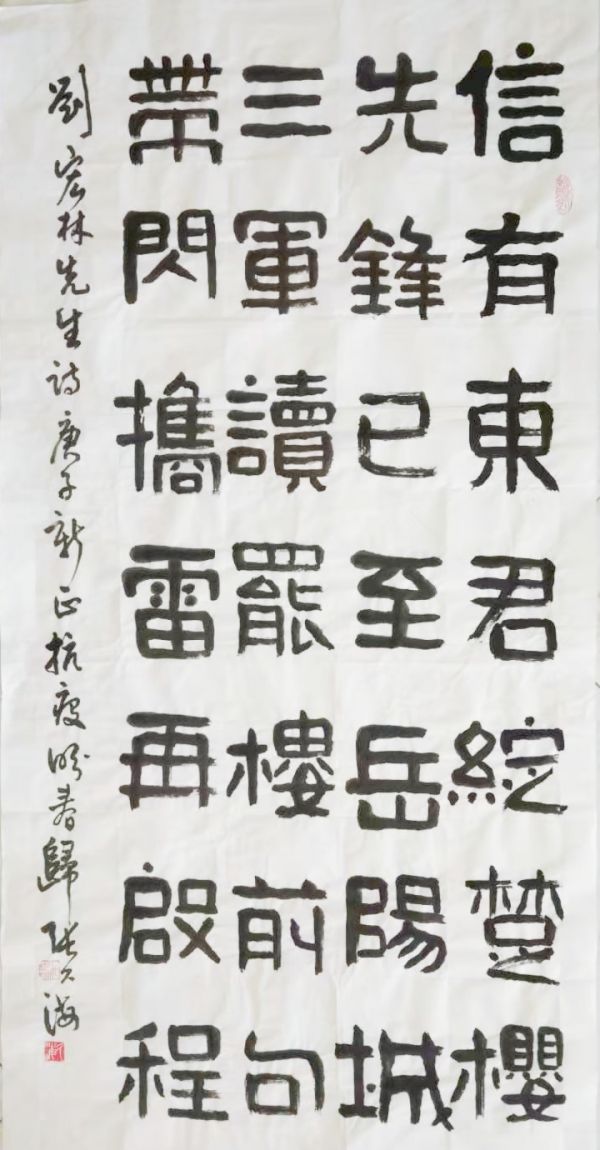 信有東君綻楚櫻
先鋒已至岳陽城
三軍讀罷樓前句
帶閃攜雷再啟程
劉宏林先生詩庚子新正抗疫盼春歸 張大海